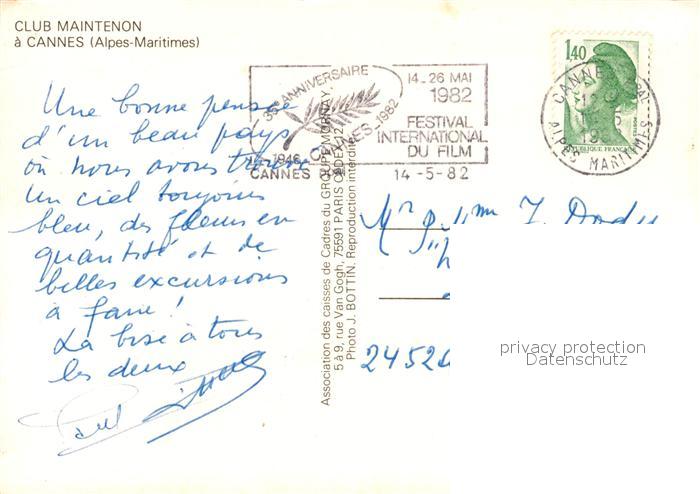 CLUB MAINTENON
à CANNES (Alpes-Maritimes)
35e ANNIVERSAIRE
1946 CANNES 1982
CANNES
14-26 MAI
1982
FESTIVAL
INTERNATIONAL
DU FILM
14-5-82
1,40
RÉPUBLIQUE FRANÇAISE
CANNES
ALPES MARITIMES
Une bonne pensée
d'un beau pays
où nous avons trouvé
un ciel toujours
bleu, des fleurs en
quantité et de
belles excursions
à faire!
La bise à tous
les deux
Paul
Association des caisses de Cadres du GROUPE MORNAY
5 à 9, rue Van Gogh, 75591 PARIS CEDEX 12
Photo J. BOTTIN. Reproduction interdite
Mr
2452
privacy protection
Datenschutz